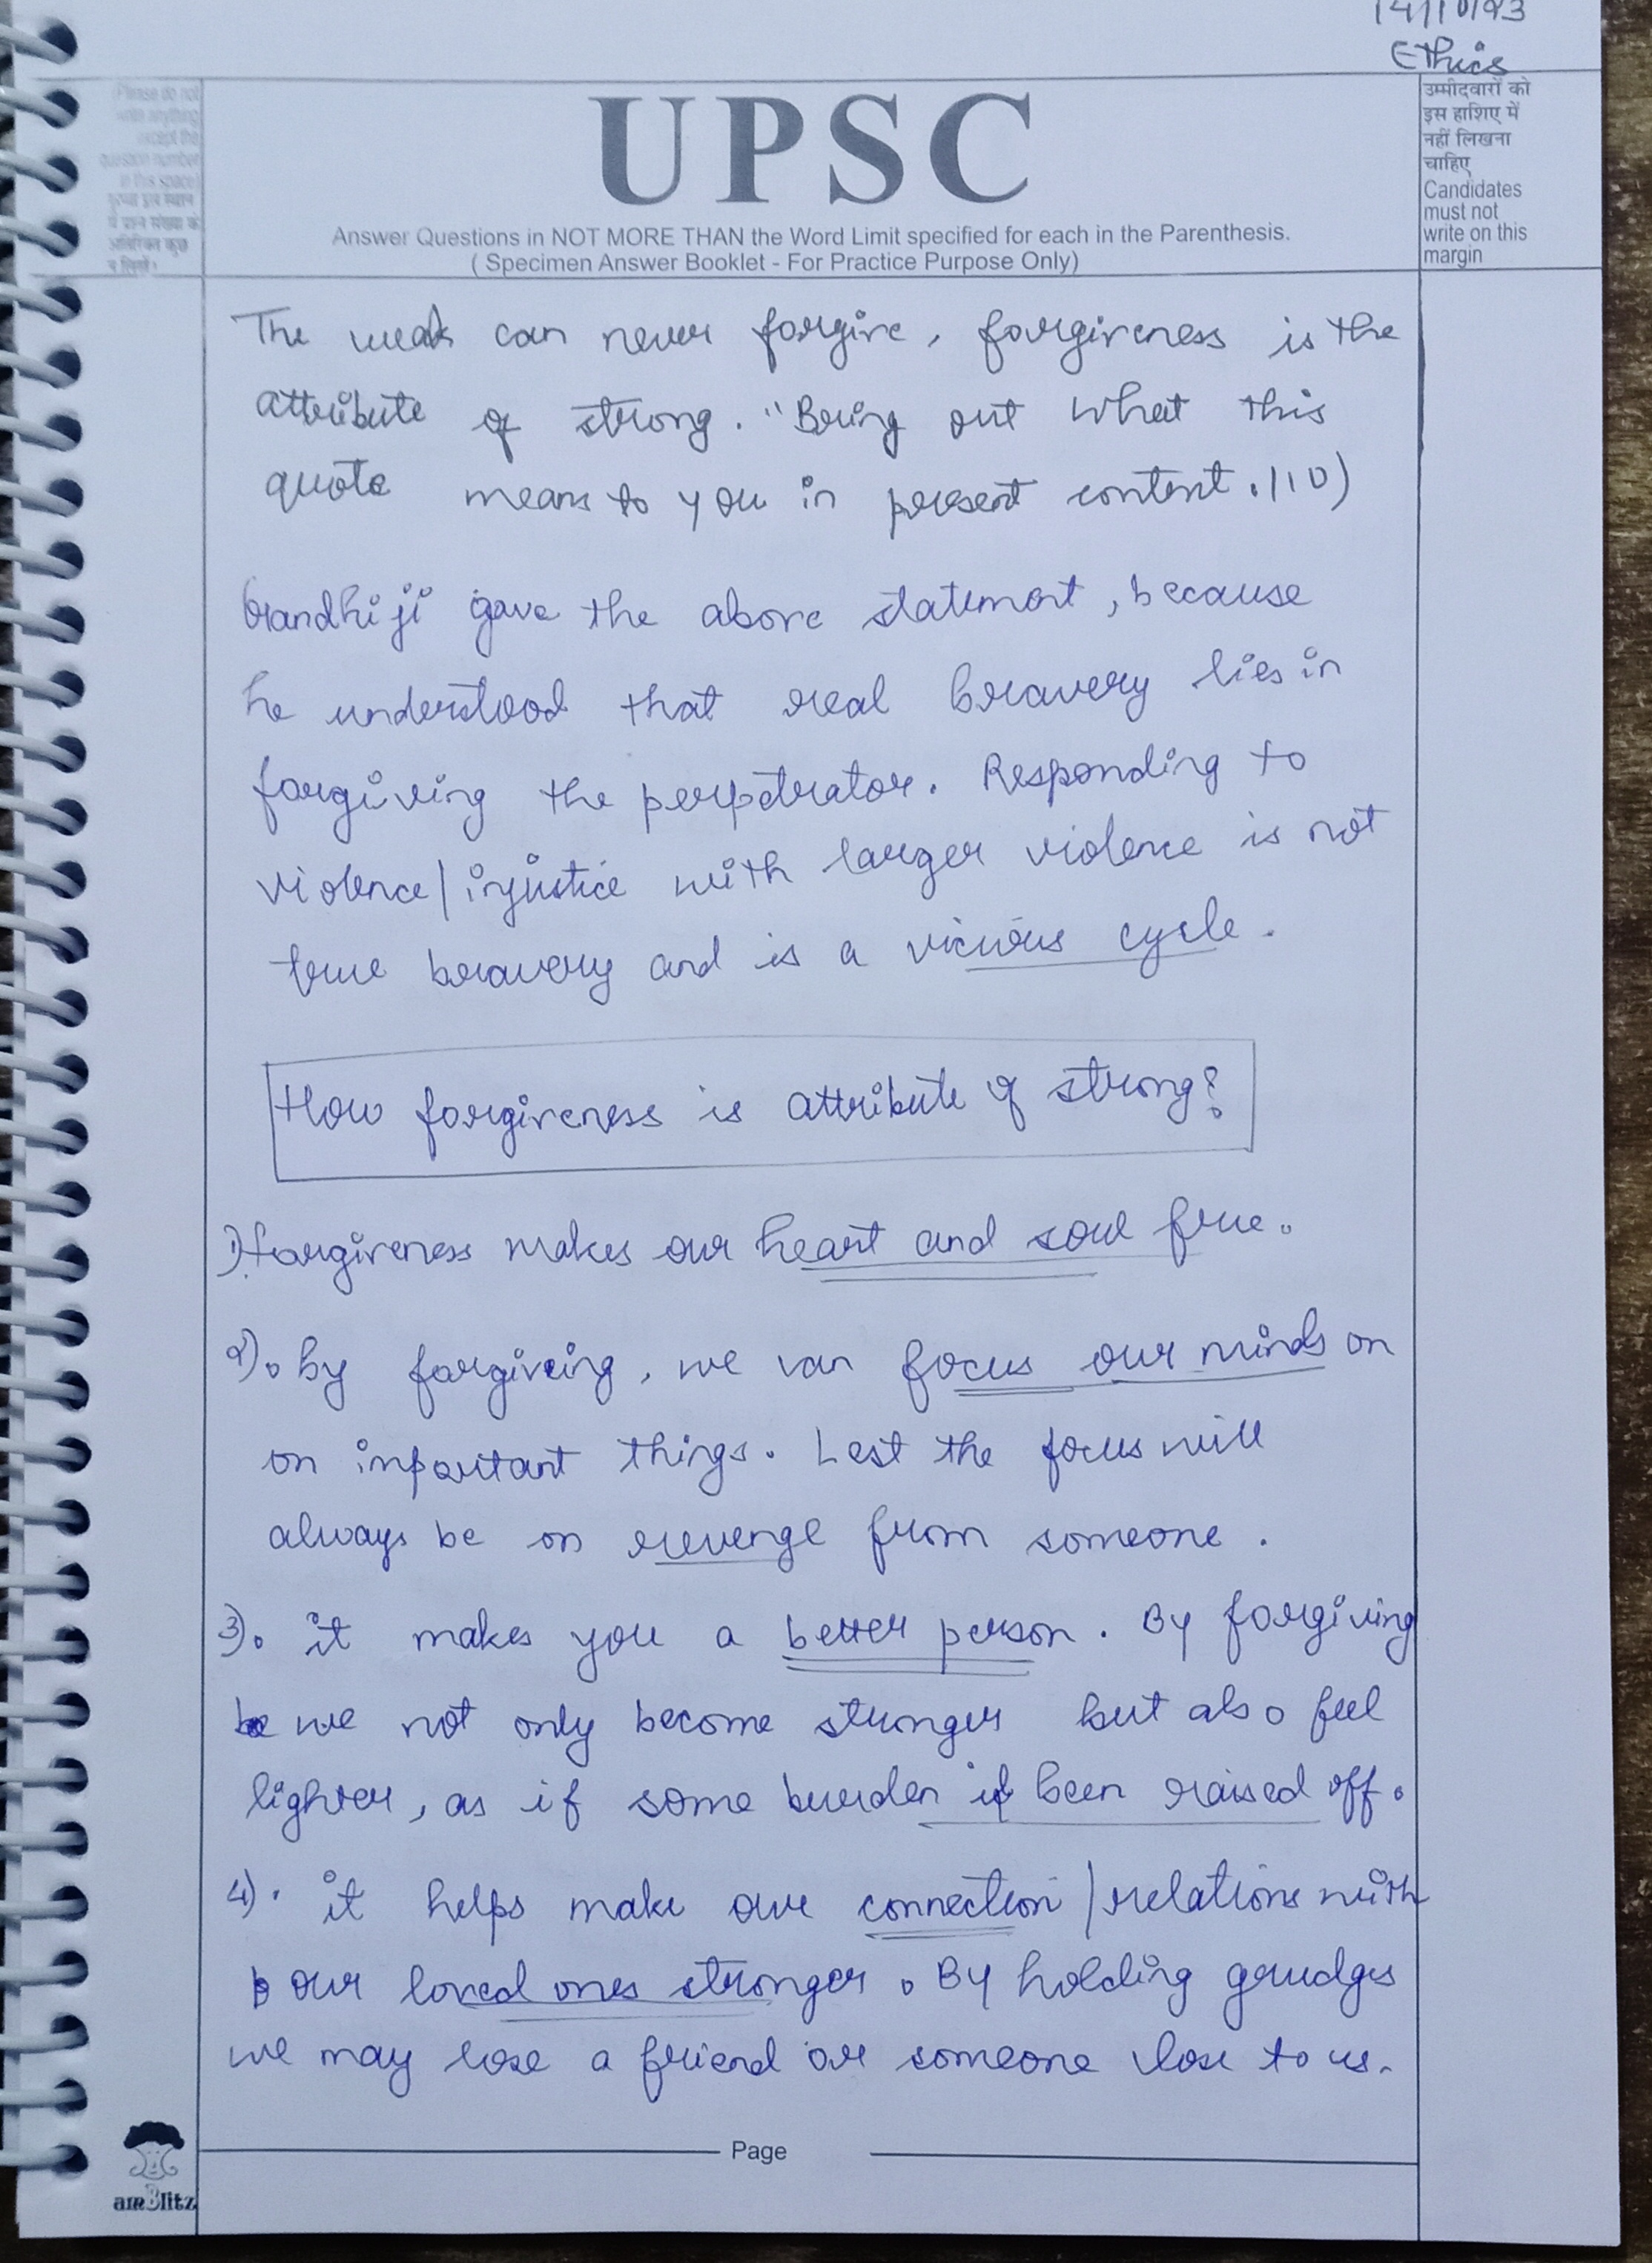 14/10/23
Ethics
UPSC
Answer Questions in NOT MORE THAN the Word Limit specified for each in the Parenthesis.
( Specimen Answer Booklet - For Practice Purpose Only)
Please do not
write anything
except the
question number
in this space
उम्मीदवारों को
इस हाशिए में
नहीं लिखना
चाहिए
Candidates
must not
write on this
margin
The weak can never forgive, forgiveness is the
attribute of strong. "Bring out what this
quote means to you in present content. (10)
Gandhiji gave the above statement, because
he understood that real bravery lies in
forgiving the perpetrator. Responding to
violence/injustice with larger violence is not
true bravery and is a vicious cycle.
How forgiveness is attribute of strong?
1) forgiveness makes our heart and soul free.
2). by forgiving, we can focus our minds on
on important things. Lest the focus will
always be on revenge from someone.
3). it makes you a better person. By forgiving
we not only become stronger but also feel
lighter, as if some burden if been raised off.
4). it helps make our connection/relations with
our loved ones stronger. By holding grudges
we may lose a friend or someone close to us.
Page
amBlitz